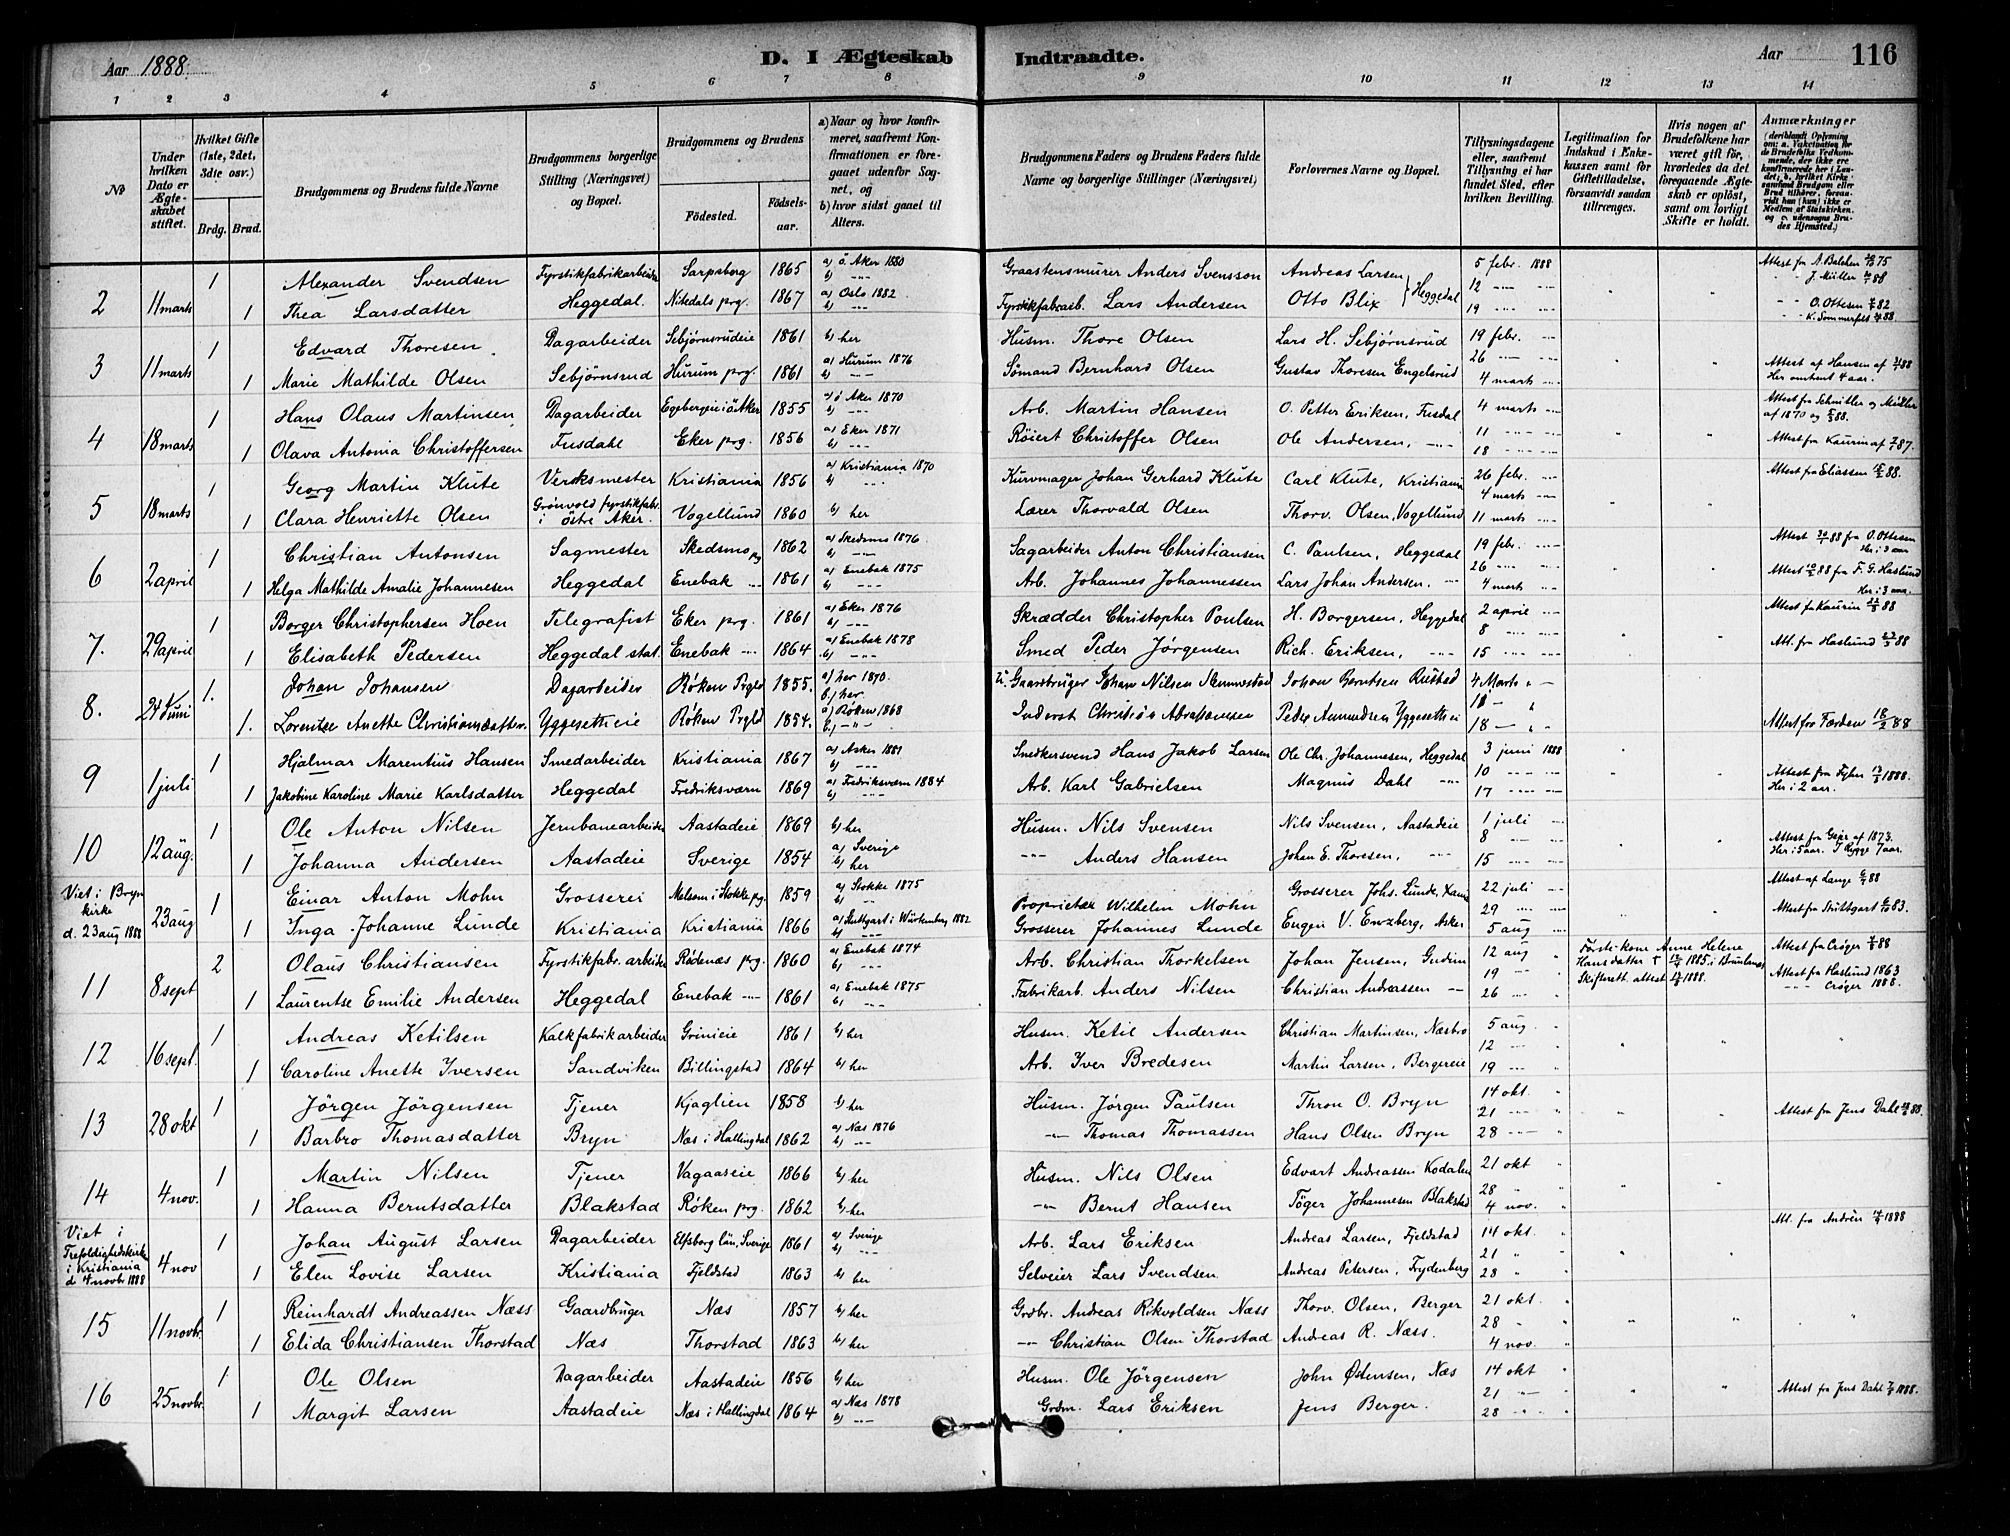 Aar 1888.
D. I Ægteskab Indtraadte.
Aar 116
1 2 3 4 5 6 7 8 9 10 11 12 13 14
No
Under hvilken Dato er Ægteskabet stiftet.
Hvilket Gifte (1ste, 2det, 3die osv.)
Brdg. Brud.
Brudgommens og Brudens fulde Navne
Brudgommens borgerlige Stilling (Næringsvei) og Bopæl.
Brudgommens og Brudens
Fødested. Fødselsaar.
a) Naar og hvor konfirmeret, saafremt Konfirmationen er foregaaet udenfor Sognet, og
b) hvor sidst gaaet til Alters.
Brudgommens Faders og Brudens Faders fulde Navne og borgerlige Stillinger (Næringsvei)
Forlovernes Navne og Bopæl.
Tillysningsdagene eller, saafremt Tillysning ei har fundet Sted, efter hvilken Bevilling.
Legitimation for Indskud i Enkekassen samt for Giftetilladelse, forsaavidt saadan tiltrænges.
Hvis nogen af Brudefolkene har været gift før, hvorledes da det foregaaende Ægteskab er opløst, samt om lovligt Skifte er holdt.
Anmærkninger
2 11 marts 1 Alexander Svendsen Fyrstikfabrikarbeider Sarpsborg 1865 a) ö Aker 1880 Graastensmurer Anders Svensson Andreas Larsen 5 febr. 1888
1 Thea Larsdatter Heggedal. Nitedals prg. 1867 a) Oslo 1882 Fyrstikfabrarb. Lars Andersen Otto Blix } Heggedal 12 19
3 11 marts 1 Edvard Thoresen Dagarbeider Sebjørnsrudeie 1861 b) her Husm. Thore Olsen Lars H. Sebjørnsrud 19 febr. 26
1 Marie Mathilde Olsen Sebjørnsrud Hurum prg. 1861 a) Hurum 1876 Sömand Bernhard Olsen Gustav Thoresen Engelsrud 4 marts Her omtrent 4 aar.
4 18 marts 1 Hans Olaus Martinsen Dagarbeider 1855 a) ö Aker 1870 Arb. Martin Hansen O. Petter Eriksen, Fusdal 4 marts
1 Olava Antonia Christoffersen Fusdahl Eker prg. 1856 a) Eker 1871 Røiert Christoffer Olsen Ole Andersen, 11 18
5 18 marts 1 Georg Martin Klute Verksmester Kristiania 1856 a) Kristiania 1870 Kurvmager Johan Gerhard Klute Carl Klute, Kristiania 26 febr. 4 marts
1 Clara Henriette Olsen Grønvold fyrstikfabr. i östre Aker. Vogellund 1860 b) her Lærer Thorvald Olsen Thorv. Olsen, Vogellund 11 marts
6 2 april 1 Christian Antonsen Sagmester Skedsmo prg 1862 a) Skedsmo 1876 Sagarbeider Anton Christiansen C. Paulsen, Heggedal 19 febr. 26 Her i 3 aar
1 Helga Mathilde Amalie Johannesen Heggedal Enebak 1861 a) Enebak 1875 Arb. Johannes Johannessen Lars Johan Andersen, 4 marts Her i 3 aar.
7. 29 april 1 Borger Christophersen Hoen Telegrafist Eker prg. 1861 a) Eker 1876 Skrædder Christopher Poulsen H. Borgersen, Heggedal 2 april 8
1 Elisabeth Pedersen Heggedal stat. Enebak 1864 a) Enebak 1878 Smed Peder Jørgensen Rich. Eriksen, 15
8. 24 Juni 1. Johan Johansen Dagarbeider Røken Prgld 1855. a) her 1870. b.) her Gaardbruger Johan Nilsen Johan Berntsen Rustad 4 Marts 11
1. Lorentse Anette Christiansdatter. Yggesetheie Røken Prgld 1854. a) Røken 1868 Inderst Christian Abrahamsen Peder Aamundsen Yggesethei 18 Attest fra Færden 18/2 88
9 1 juli 1 Hjalmar Marentius Hansen Smedarbeider Kristiania 1867 a) Asker 1881 Snedkersvend Hans Jakob Larsen Ole Chr. Johannesen, Heggedal 3 juni 1888
1 Jakobine Karoline Marie Karlsdatter Heggedal Fredriksværn 1869 a) Fredriksværn 1884 Arb. Karl Gabrielsen Magnus Dahl 10 17 Her i 2 aar.
10 12 aug. 1 Ole Anton Nilsen Jernbanearbeider Aastadeie 1869 b) her Husm. Nils Svensen Nils Svensen, Aastadeie 1 juli 8
1 Johanna Andersen Aastadeie Sverige 1854 a) Sverige b) her Anders Hansen Johan E. Thoresen, 15 Her i 5 aar. I Rygge 7 aar.
Viet i Bryn kirke d. 23 aug 1888 23 aug 1 Einar Anton Mohn Grosserer Melsom i Stokke prg. 1859 a) Stokke 1875 Proprietær Wilhelm Mohn Grosserer Johs. Lunde, Xania 22 juli 29
1 Inga Johanne Lunde Kristiania Kristiania 1866 a) Stuttgart i Würtemberg 1882 Grosserer Johannes Lunde Eugen V. Enzberg, Asker 5 aug
11 8 sept 2 Olaus Christiansen Fyrstikfabr. arbeider Rødenæs prg. 1860 a) Enebak 1874 Arb. Christian Thorkelsen Johan Jensen, Gudim 12 aug 19 Förste kone Anne Helene Hansdatter
1 Laurentse Emilie Andersen Heggedal Enebak 1861 a) Enebak 1875 Fabrikarb. Anders Nilsen Christian Andreassen 26 Attest fra Haslund 1863 Crøger 1888.
12 16 sept. 1 Andreas Ketilsen Kalkfabrikarbeider Grinieie 1861 b) her Husm. Ketil Andersen Christian Martinsen, Næsbro 5 aug 12
1 Caroline Anette Iversen Sandviken Billingstad 1864 b) her Arb. Iver Bredesen Martin Larsen, Bergereie 19
13 28 okt 1 Jörgen Jörgensen Tjener Kjaglien 1858 b) her Husm. Jörgen Paulsen Thron O. Bryn 14 okt. 21
1 Barbro Thomasdatter Bryn Næs i Hallingdal 1862 a) Næs 1876 Thomas Thomassen Hans Olsen Bryn 28 Attest fra Jens Dahl
14 4 nov. 1 Martin Nilsen Tjener Vagaaseie 1866 b) her Husm. Nils Olsen Edvart Andreassen Kodalen 21 okt 28
1 Hanna Berntsdatter Blakstad Röken prg. 1862 b) her Bernt Hansen Töger Johannesen Blakstad 4 nov.
Viet i Trefoldighedskirke i Kristiania d. 4 novb 1888 4 nov 1 Johan August Larsen Dagarbeider Elfsborg län, Sverige 1861 a) Sverige Arb. Lars Eriksen Andreas Larsen, Fjeldstad 14 okt 21
1 Elen Lovise Larsen Kristiania Fjeldstad 1863 b) her Selveier Lars Svendsen Andreas Petersen, Frydenberg 28
15 11 novbr. 1 Reinhardt Andreassen Næss Gaardbruger Næs 1857 b) her Grdbr. Andreas Rikvoldsen Næss Thorv. Olsen, Berger 21 okt. 28
1 Elida Christiansen Thorstad Næs Thorstad 1863 b) her Christian Olsen Thorstad Andreas R. Næss. 4 nov.
16 25 novbr. 1 Ole Olsen Dagarbeider Aastadeie 1856 b) her Husm. Ole Jörgensen John Østensen, Næs 14 okt 21
1 Margit Larsen Aastadeie Næs i Hallingdal 1864 a) Næs 1878 Grdm. Lars Eriksen Jens Berger. 28 Attest fra Jens Dahl